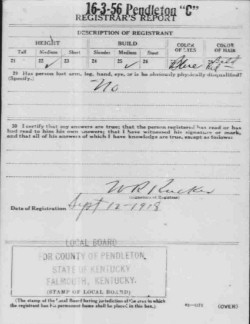 16-3-56 Pendleton "C"
REGISTRAR'S REPORT
DESCRIPTION OF REGISTRANT
HEIGHT BUILD COLOR OF EYES COLOR OF HAIR
Tall Medium Short Slender Medium Stout
21 22 ✓ 23 24 25 ✓ 26 27 Blue 28
29 Has person lost arm, leg, hand, eye, or is he obviously physically disqualified?
(Specify.)
No
30 I certify that my answers are true; that the person registered has read or has
had read to him his own answers; that I have witnessed his signature or mark,
and that all of his answers of which I have knowledge are true, except as follows:
W R Rucker
Date of Registration Sept 12 - 1918
LOCAL BOARD
FOR COUNTY OF PENDLETON,
STATE OF KENTUCKY
FALMOUTH, KENTUCKY.
(STAMP OF LOCAL BOARD)
(The stamp of the Local Board having jurisdiction of the area in which
the registrant has his permanent home shall be placed in this box.)
(OVER)